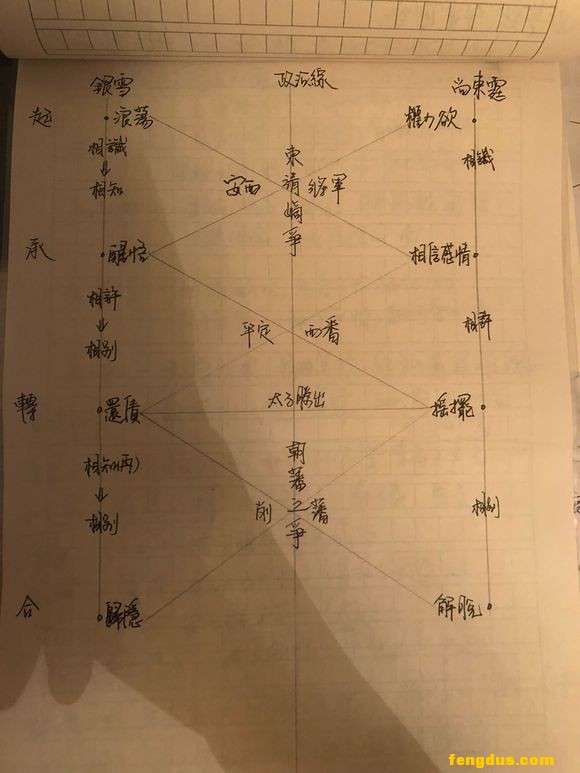 銀雪 政治線 尚東霆
起 浪蕩 權力欲
相識 相識
東靖嫡爭
安西 將軍
相知
承 醒悟 相信感情
相許 相許
平定 西番
相別
轉 還債 太子勝出 搖擺
相知(再)
朝藩之爭
削 藩 相別
相別
合 歸隱 解脫
fengdus.com